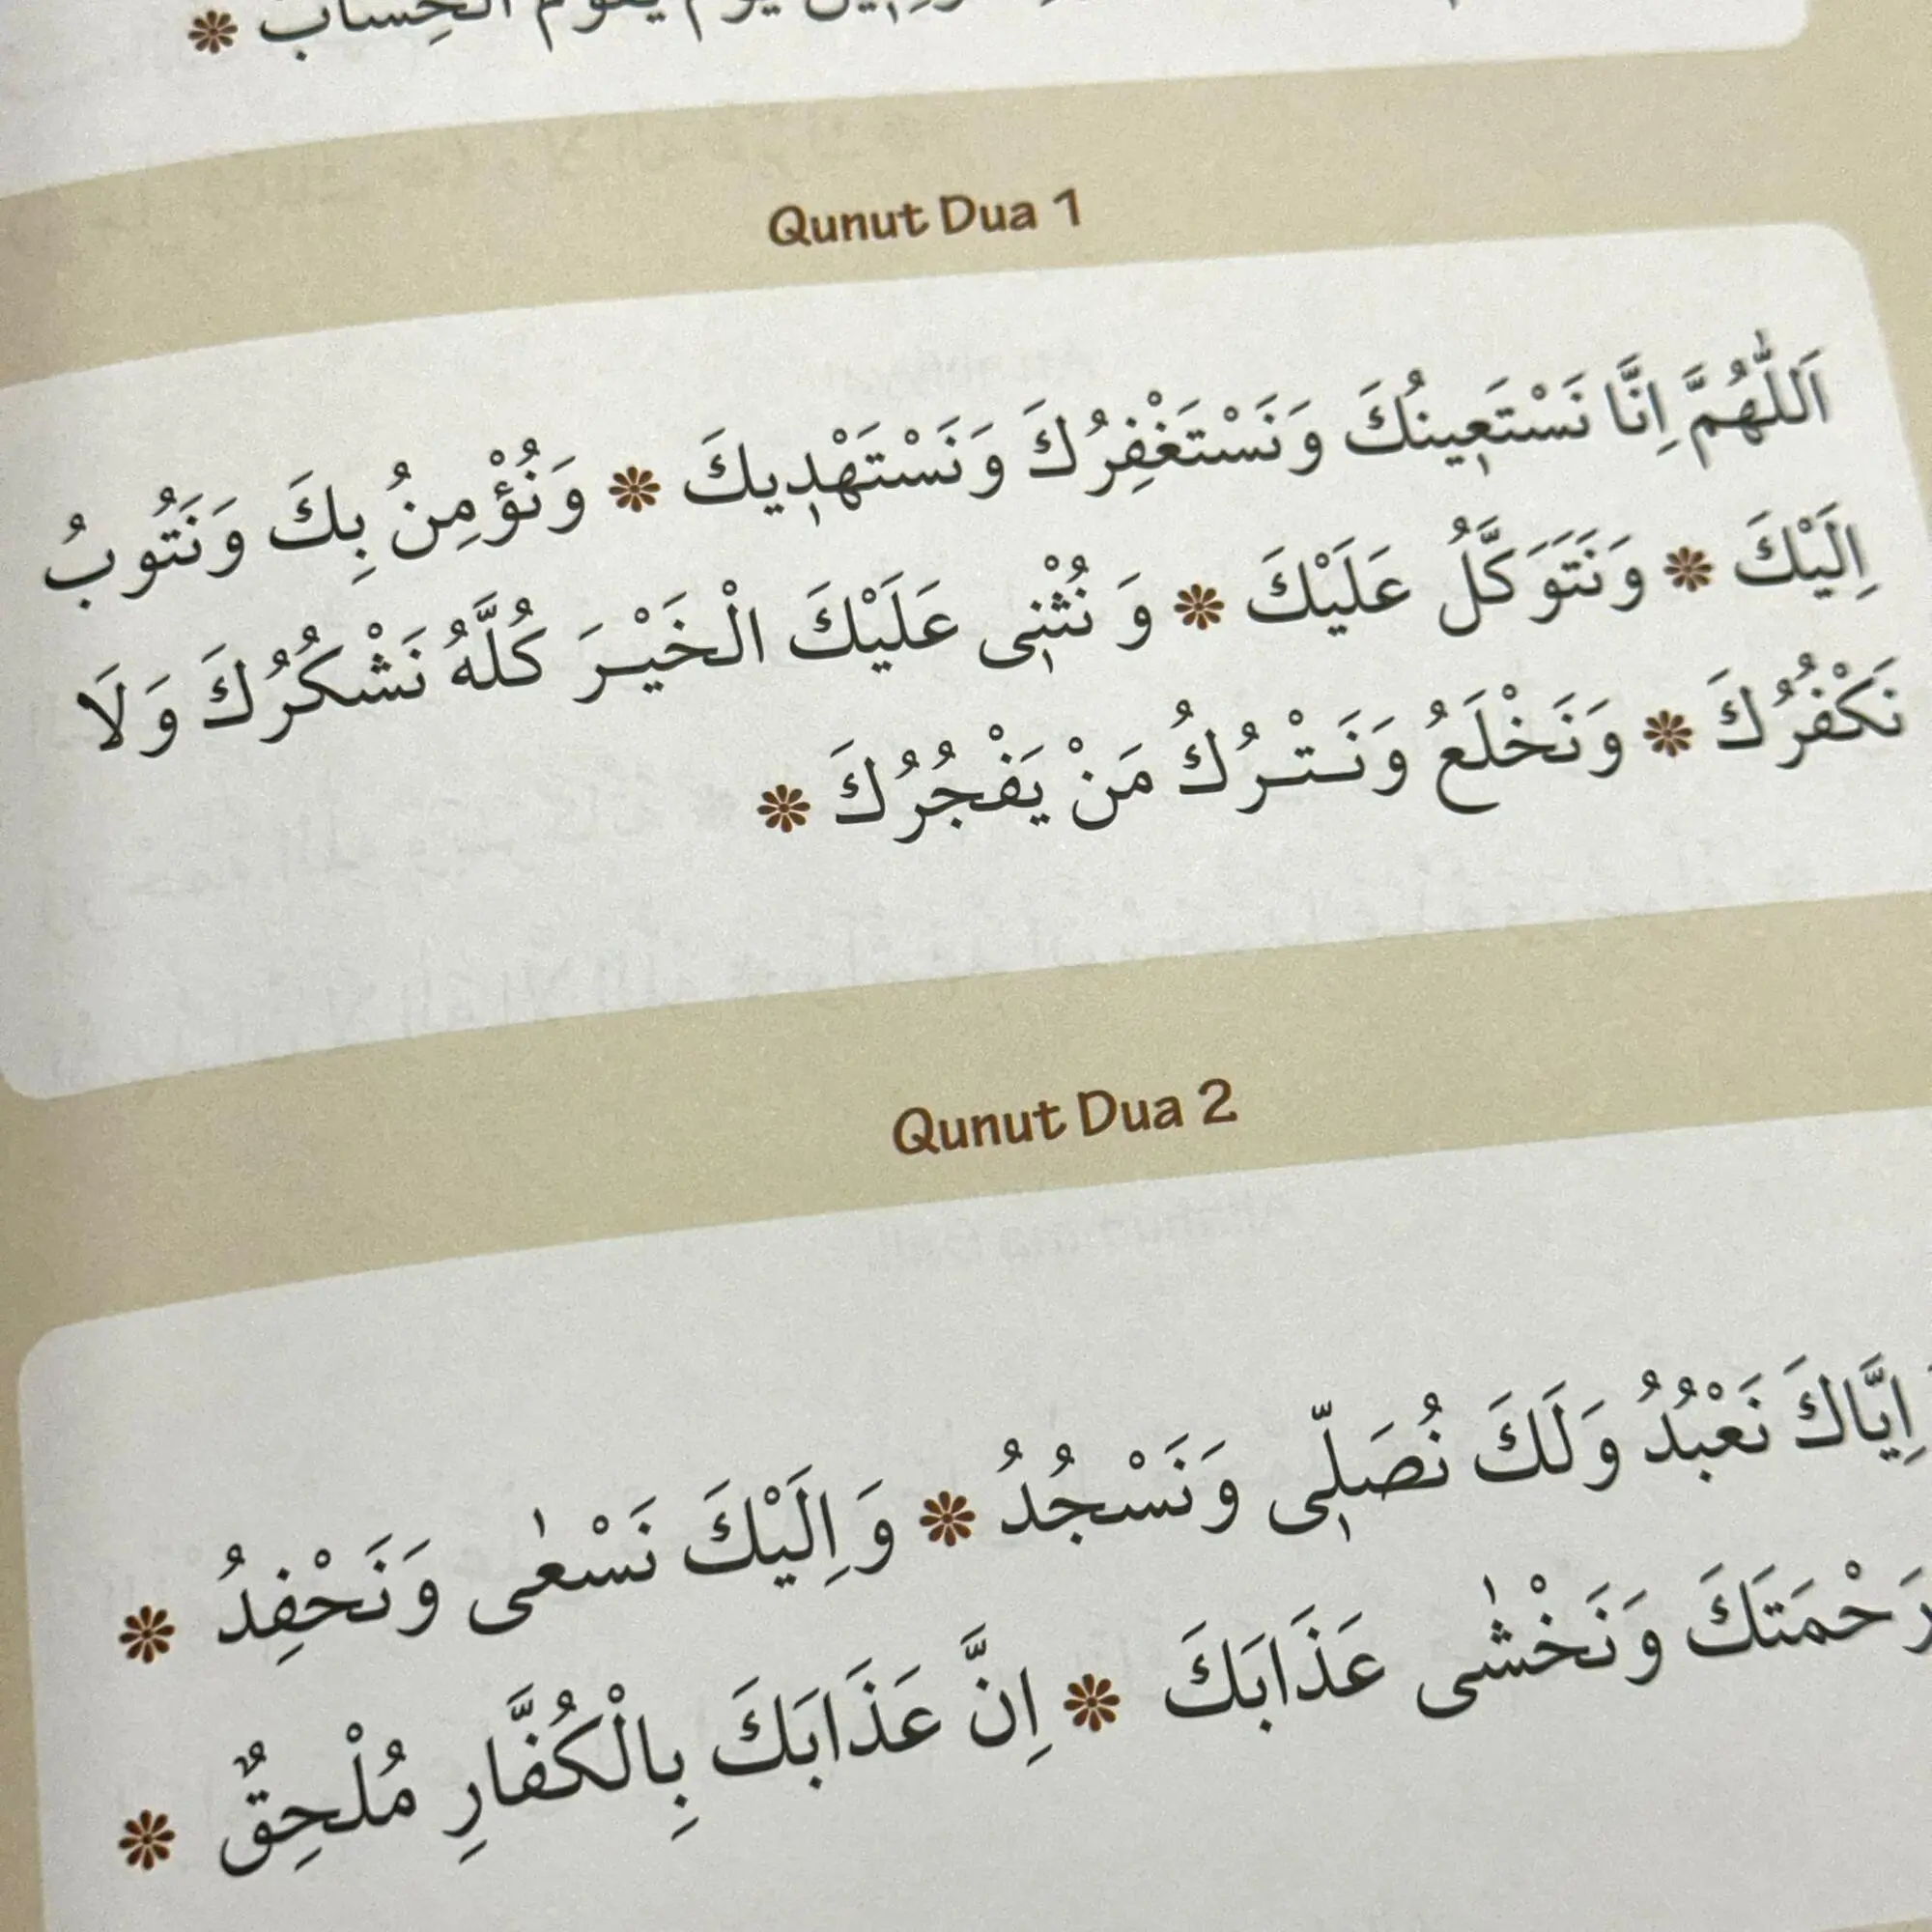 يَوْمَ يَقُومُ الْحِسَابُ ❋
Qunut Dua 1
اَللّٰهُمَّ اِنَّا نَسْتَعٖينُكَ وَنَسْتَغْفِرُكَ وَنَسْتَهْدٖيكَ ❋ وَنُؤْمِنُ بِكَ وَنَتُوبُ
اِلَيْكَ ❋ وَنَتَوَكَّلُ عَلَيْكَ ❋ وَ نُثْنٖى عَلَيْكَ الْخَيْرَ كُلَّهُ نَشْكُرُكَ وَلَا
نَكْفُرُكَ ❋ وَنَخْلَعُ وَنَتْرُكُ مَنْ يَفْجُرُكَ ❋
Qunut Dua 2
اِيَّاكَ نَعْبُدُ وَلَكَ نُصَلّٖى وَنَسْجُدُ ❋ وَاِلَيْكَ نَسْعٰى وَنَحْفِدُ ❋
رَحْمَتَكَ وَنَخْشٰى عَذَابَكَ ❋ اِنَّ عَذَابَكَ بِالْكُفَّارِ مُلْحِقٌ ❋